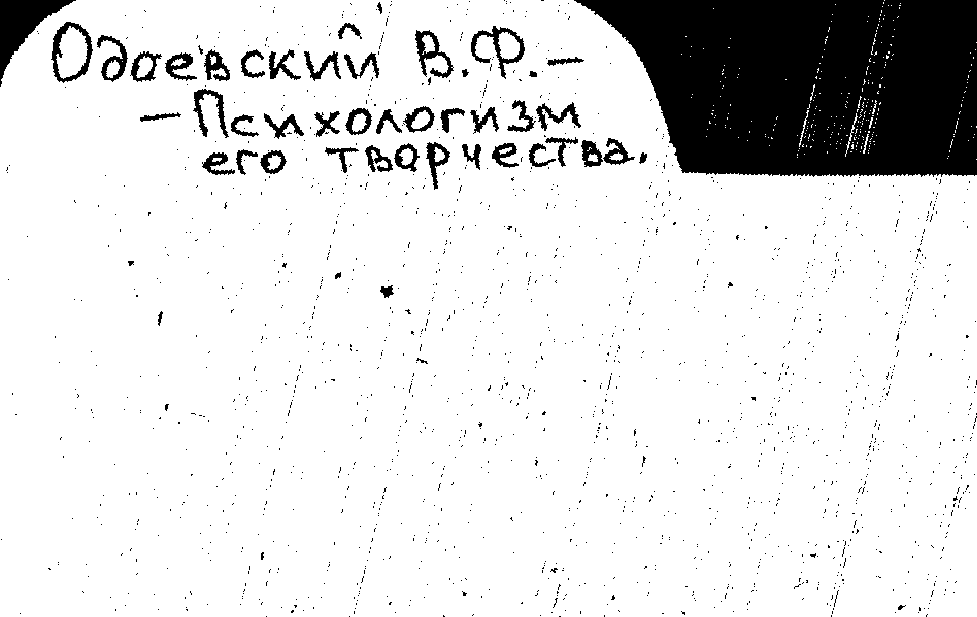 Одоевский В.Ф. —
— Психологизм
его творчества.